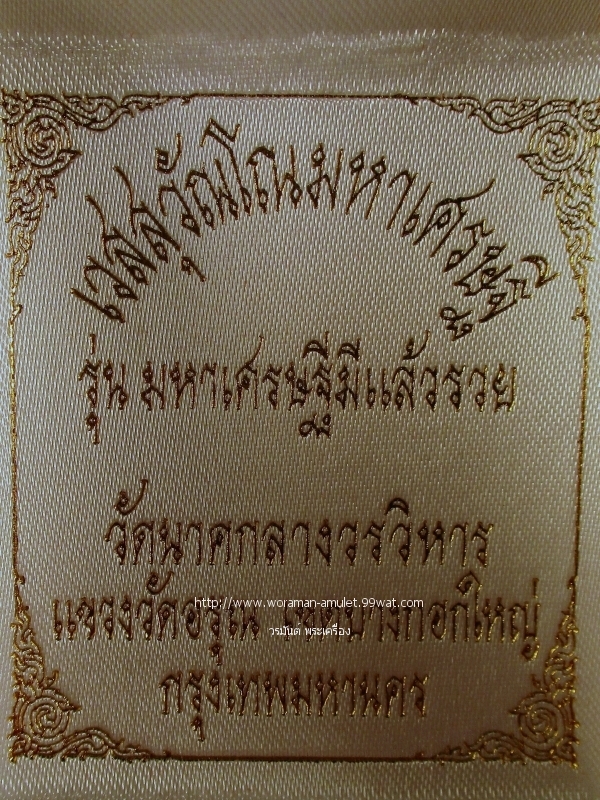 เวสสุวัณโณมหาเศรษฐี
รุ่น มหาเศรษฐีมีแล้วรวย
วัดนาคกลางวรวิหาร
http://www.woraman-amulet.99wat.com
แขวงวัดอรุณ เขตบางกอกใหญ่
วรมันต์ พระเครื่อง
กรุงเทพมหานคร